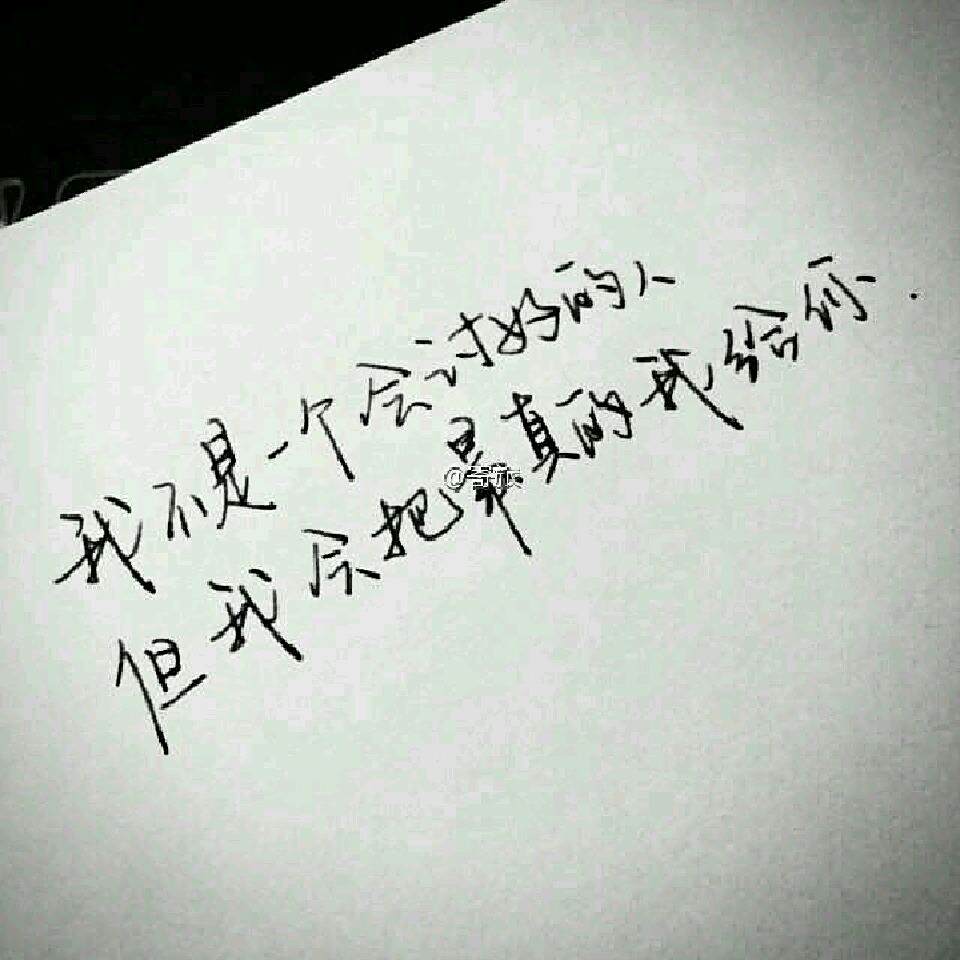 我不是一个会讨好的人
但我会把最真的我给你.